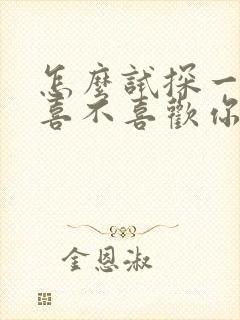 怎麼試探一
喜不喜歡你
金恩淑